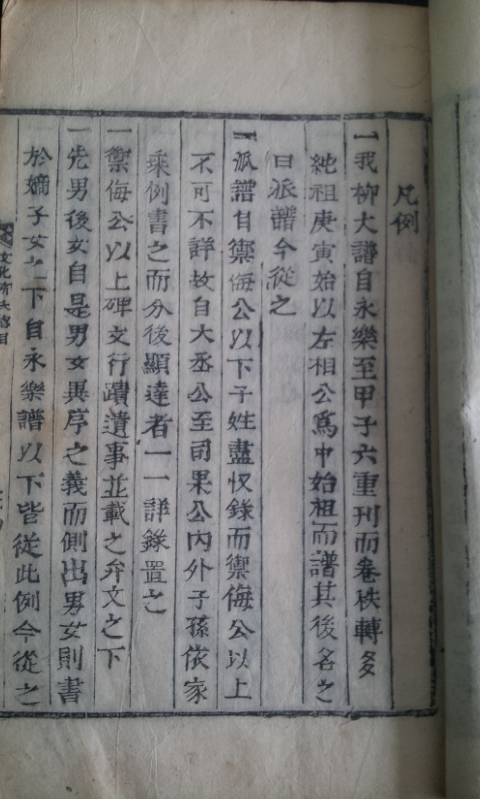 凡例
一我柳大譜自永樂至甲子六重刊而卷秩轉多
純祖庚寅始以左相公爲中始祖而譜其後名之
曰派譜今從之
一派譜自禦侮公以下子姓盡収錄而禦侮公以上
不可不詳故自大丞公至司果公內外子孫依家
乘例書之而分後顯達者一一詳錄置之
一禦侮公以上碑文行蹟遺事並載之弁文之下
一先男後女自是男女異序之義而側出男女則書
於嫡子女之下自永樂譜以下皆從此例今從之
文化